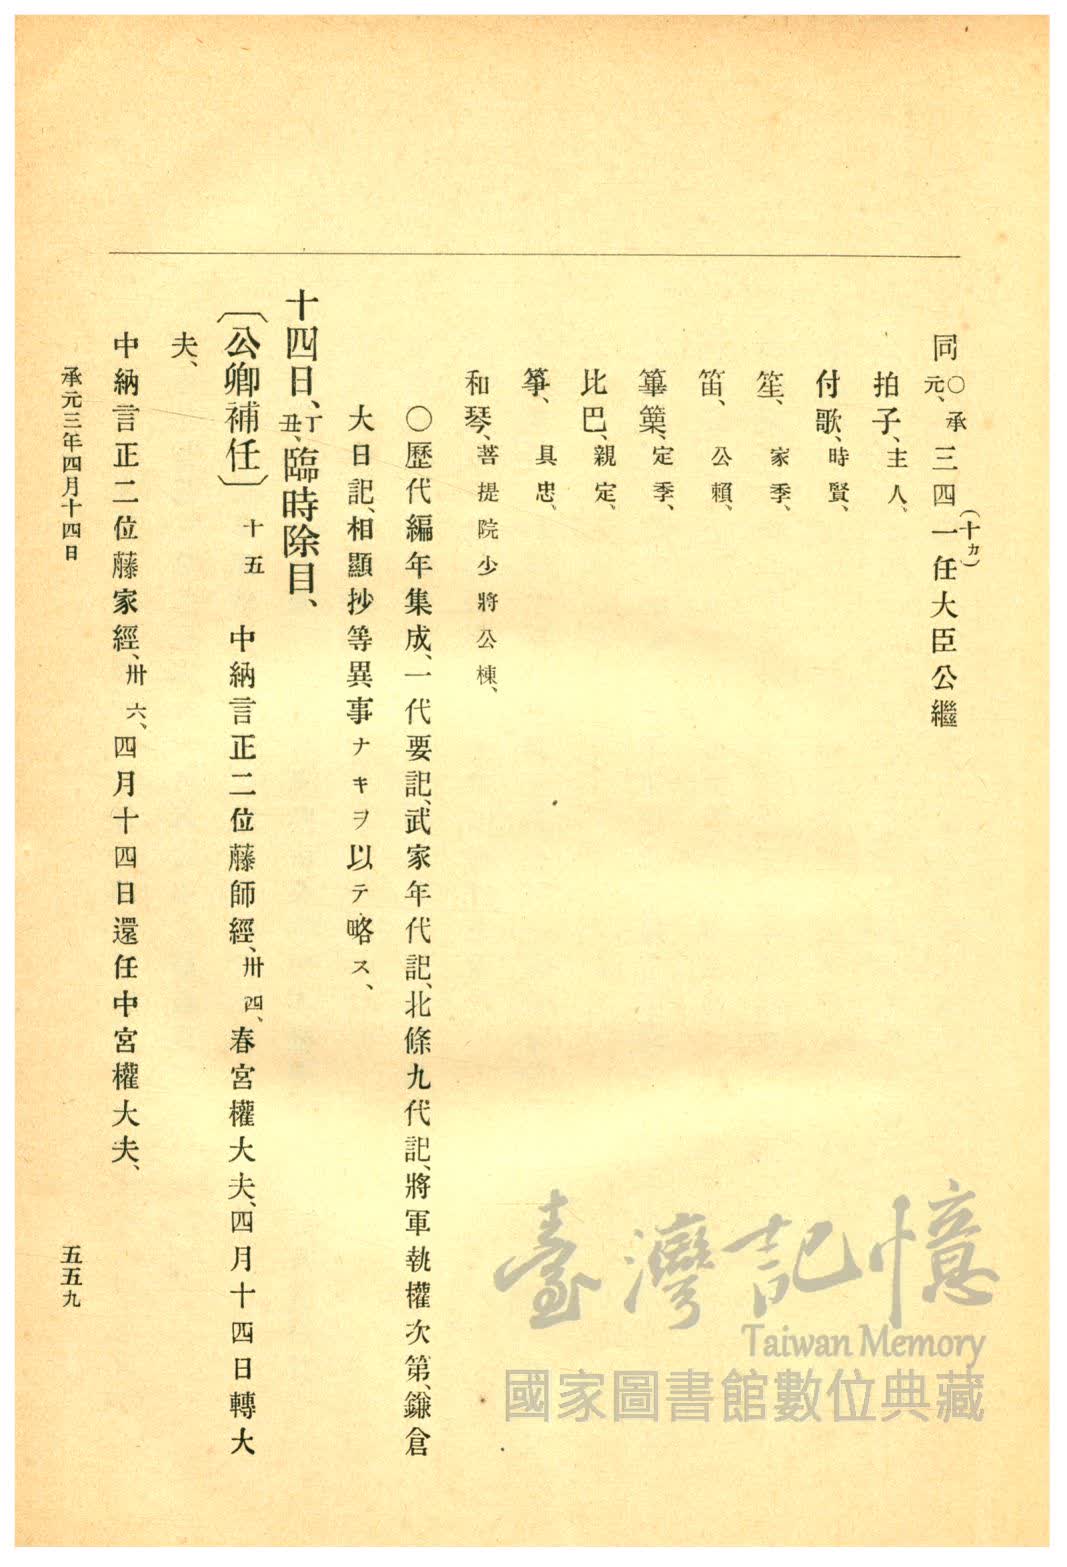 同〇承元、三四(十カ)一任大臣公繼
拍子、主人、
付歌、時賢、
笙、家季、
笛、公賴、
篳篥、定季、
比巴、親定、
箏、具忠、
和琴、菩提院少將公棟、
〇歷代編年集成、一代要記、武家年代記、北條九代記、將軍執權次第、鎌倉
大日記、相顯抄等異事ナキヲ以テ略ス、
十四日、丁丑、臨時除目、
〔公卿補任〕十五 中納言正二位藤師經、卅四、春宮權大夫、四月十四日轉大
夫、
中納言正二位藤家經、卅六、四月十四日還任中宮權大夫、
承元三年四月十四日
五五九
臺灣記憶
Taiwan Memory
國家圖書館數位典藏